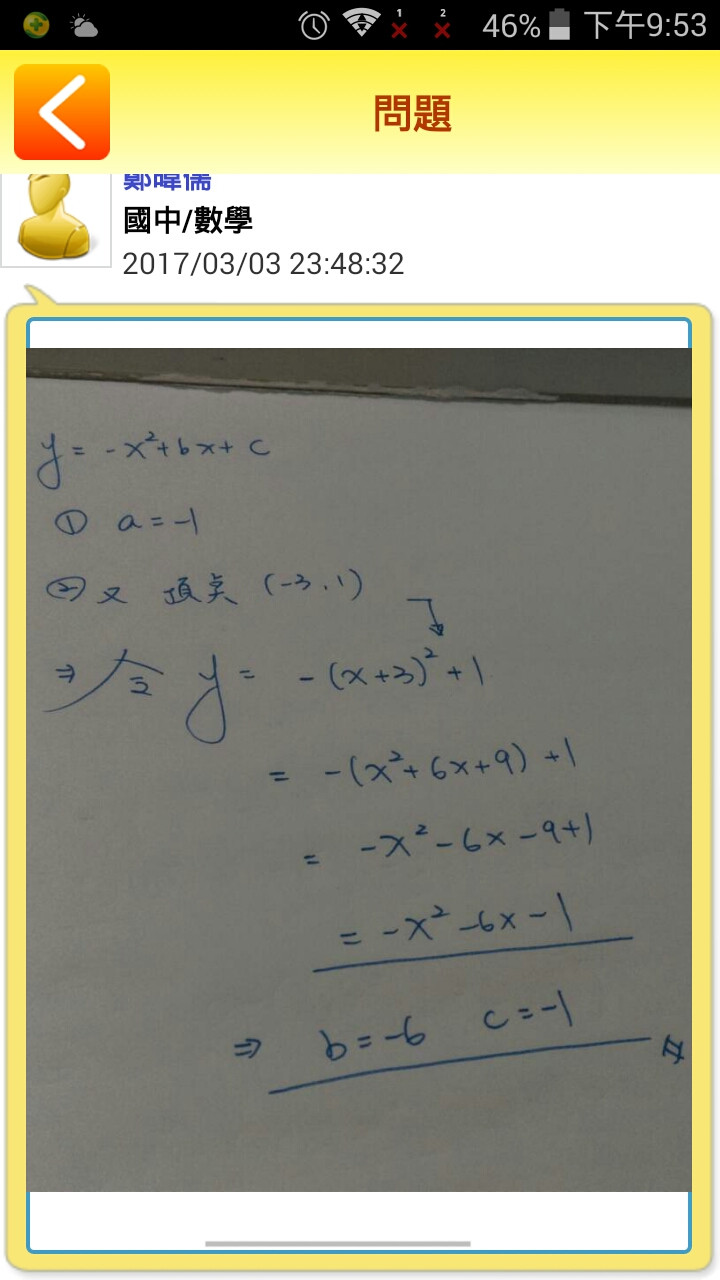 1 2 46% 下午9:53
問題
鄭暐儒
國中/數學
2017/03/03 23:48:32
y = -x²+bx+c
① a=-1
② 又 頂點 (-3.1)
⇒ 令 y = -(x+3)²+1
= -(x²+6x+9)+1
= -x²-6x-9+1
= -x²-6x-1
⇒ b=-6 c=-1 #